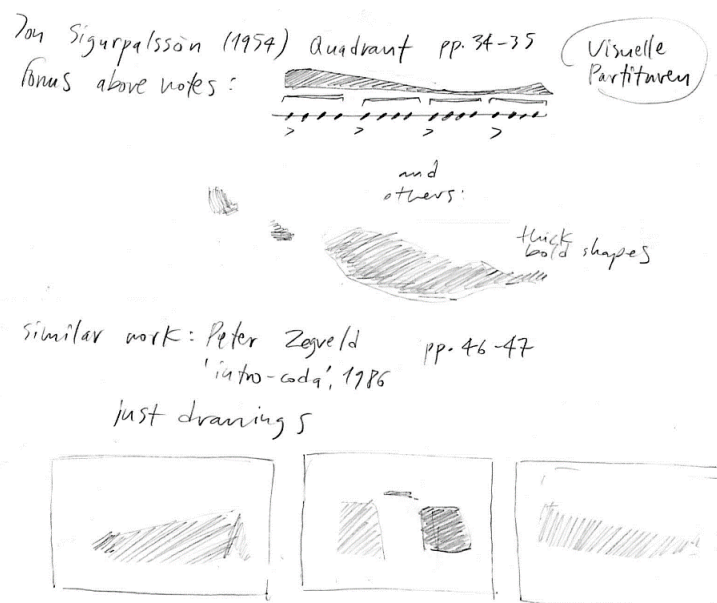 Jon Sigurpalssòn (1954) Quadrant pp. 34-35
Visuelle
Partituren
forms above notes:
and
others:
thick
bold shapes
similar work: Peter Zegveld pp. 46-47
'intro-coda', 1986
just drawings